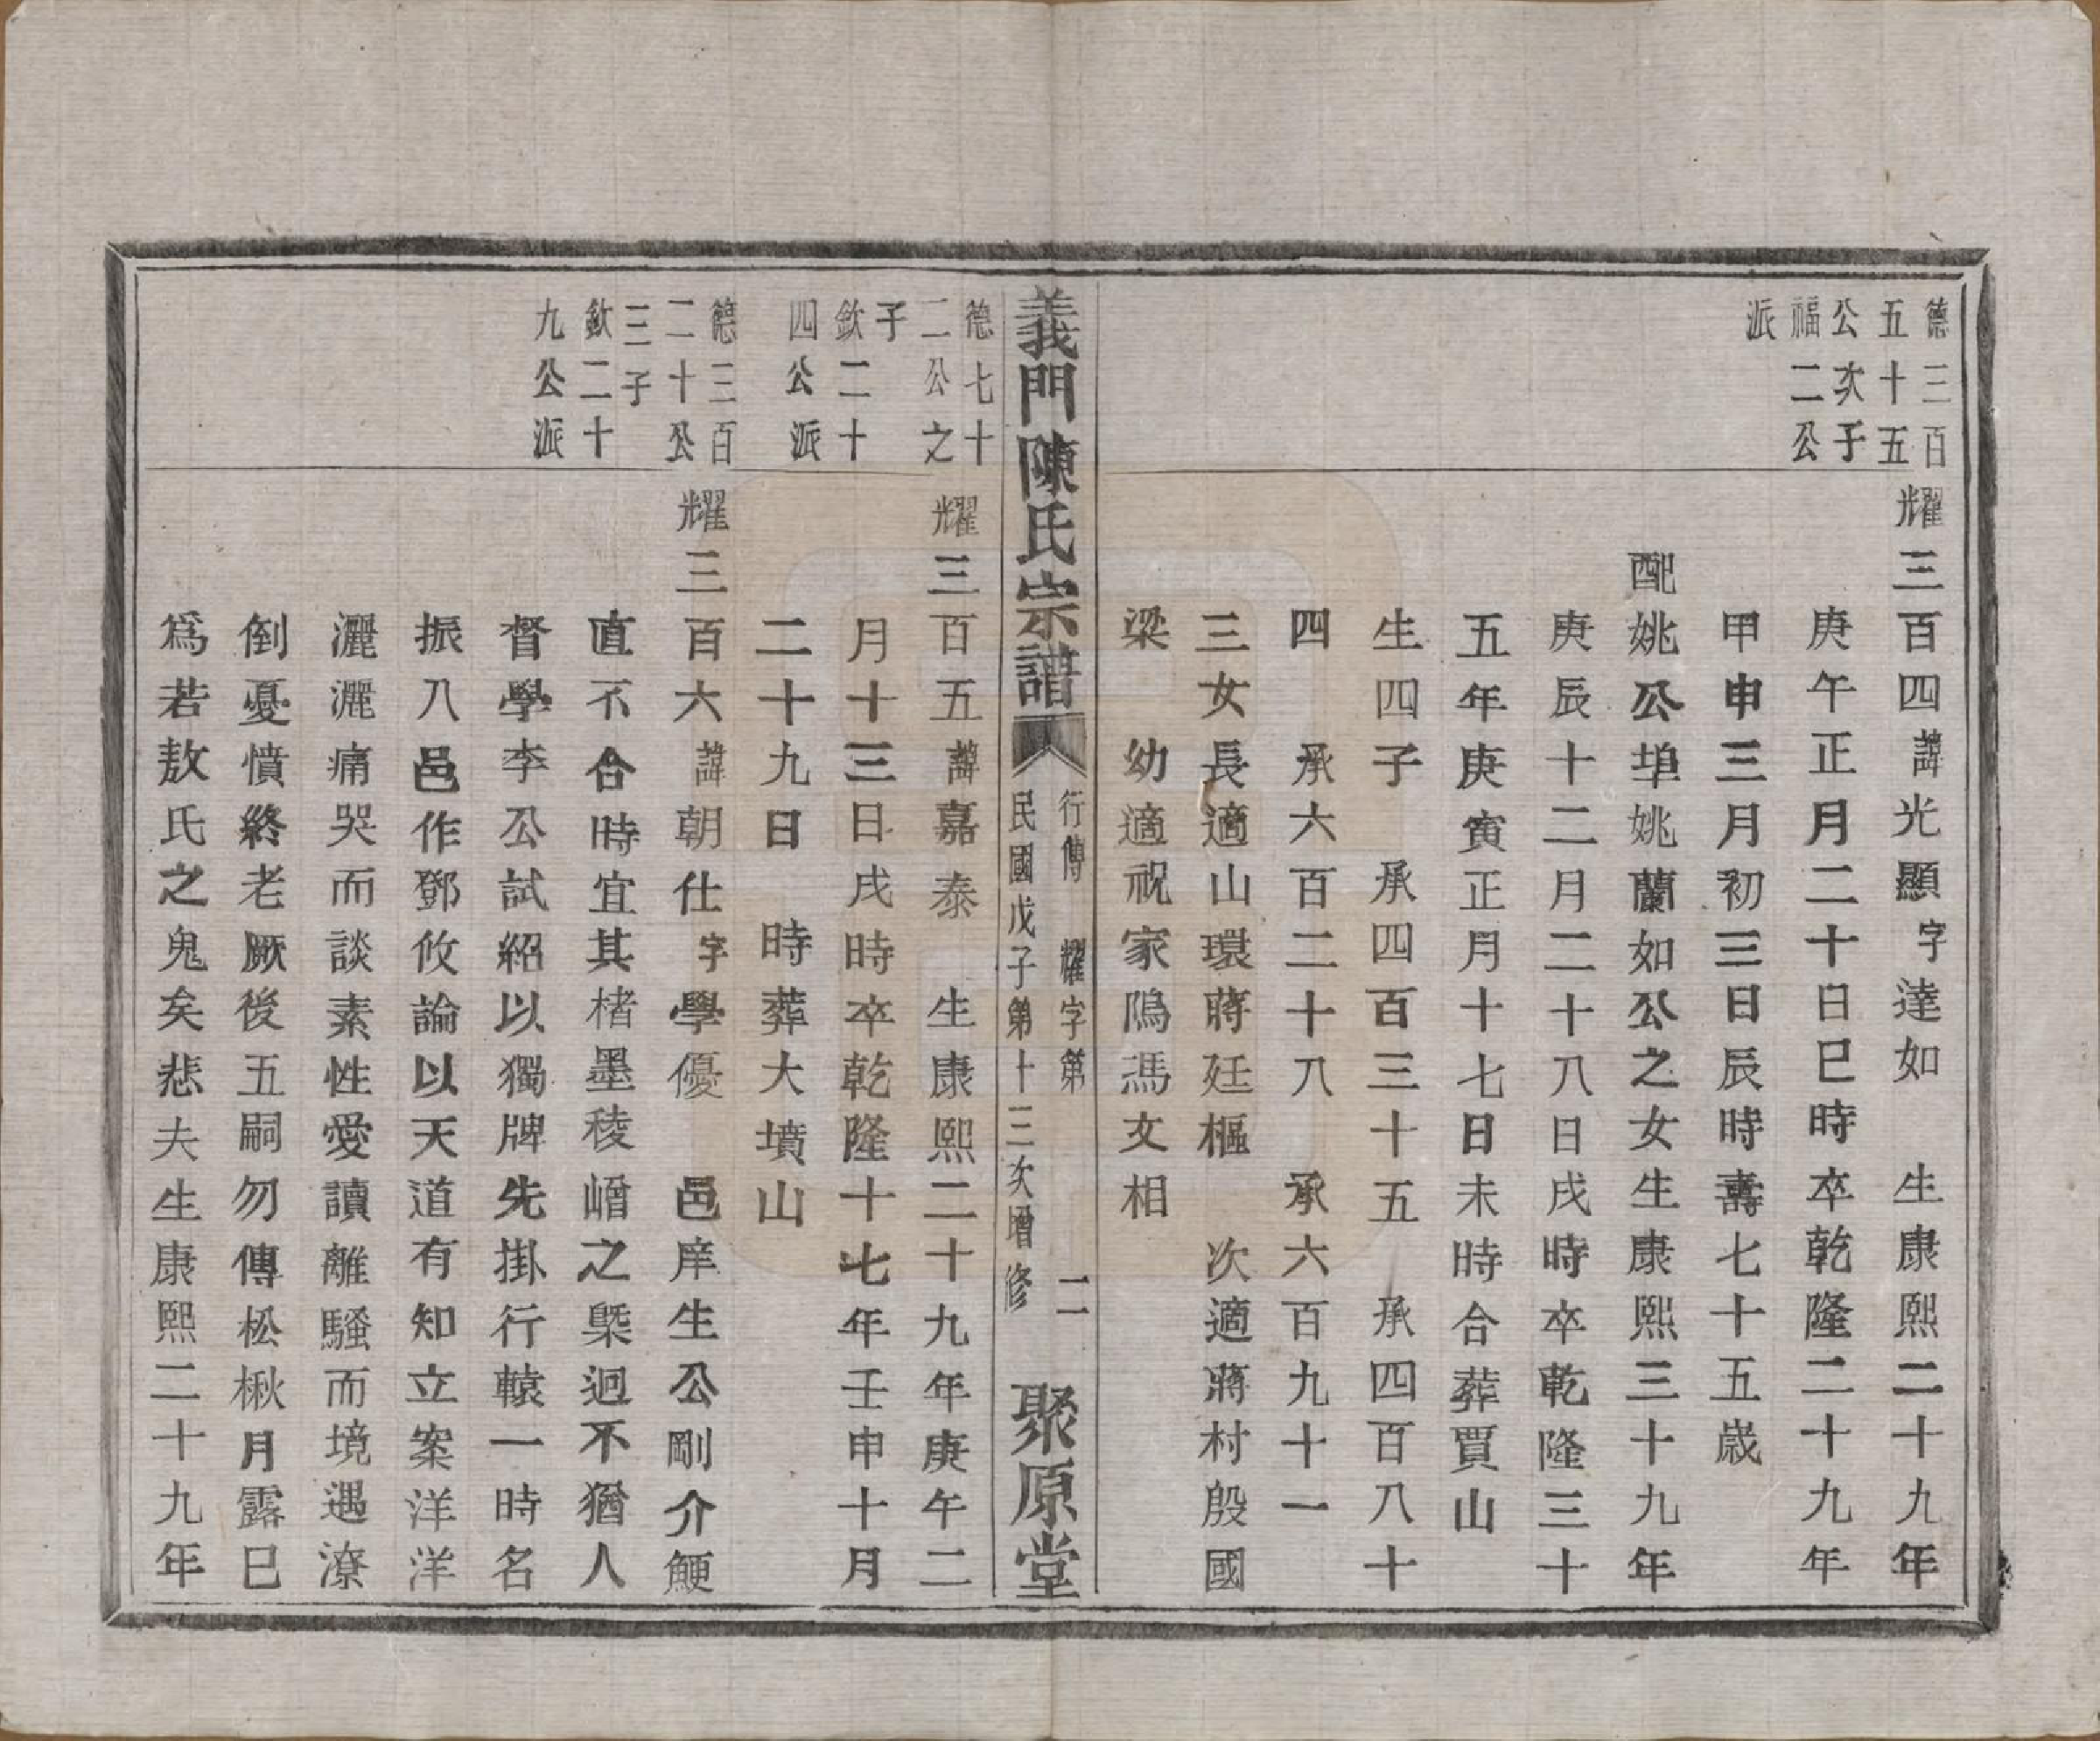 德三百
五十五
公次子
福二公
派
耀三百四諱光顯字達如　生康熙二十九年
庚午正月二十日巳時卒乾隆二十九年
甲申三月初三日辰時壽七十五歲
配姚公埠姚蘭如公之女生康熙三十九年
庚辰十二月二十八日戌時卒乾隆三十
五年庚寅正月十七日未時合葬賈山
生四子　承四百三十五　承四百八十
四　承六百二十八　承六百九十一
三女長適山環蔣廷樞　次適蔣村殷國
梁　幼適祝家隖馮文相
義門陳氏宗譜
行傳　耀字第　二
民國戊子第十三次增修
聚原堂
德七十
二公之
子
欽二十
四公派
耀三百五諱嘉泰　生康熙二十九年庚午二
月十三日戌時卒乾隆十七年壬申十月
二十九日　時葬大墳山
德三百
二十公
三子
欽二十
九公派
耀三百六諱朝仕字學優　邑庠生公剛介鯁
直不合時宜其楮墨稜嶒之槩迥不猶人
督學李公試紹以獨牌先掛行轅一時名
振八邑作鄧攸論以天道有知立案洋洋
灑灑痛哭而談素性愛讀離騷而境遇潦
倒憂憤終老厥後五嗣勿傳松楸月露巳
爲若敖氏之鬼矣悲夫生康熙二十九年